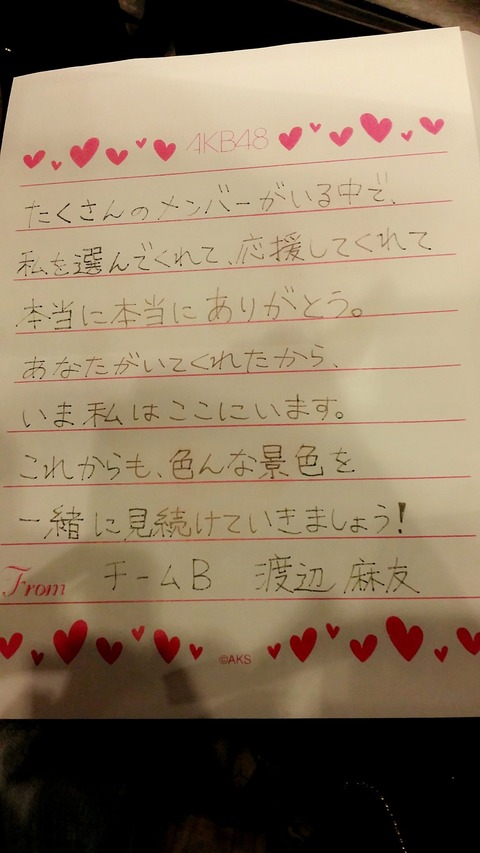 AKB48
たくさんのメンバーがいる中で、
私を選んでくれて、応援してくれて
本当に本当にありがとう。
あなたがいてくれたから、
いま私はここにいます。
これからも、色んな景色を
一緒に見続けていきましょう!
From チームB 渡辺 麻友
©AKS